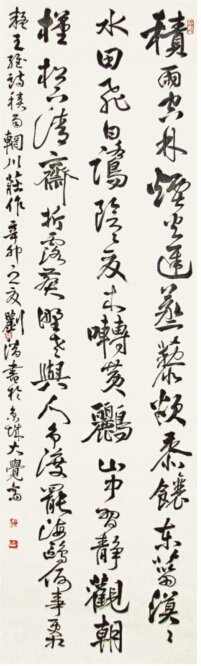 積雨空林煙火遲蒸藜炊黍饟东菑漠〻
水田飛白鷺陰〻夏木囀黃鸝山中習靜觀朝
槿松下清齋折露葵野老與人爭席罷海鷗何事更相
疑王維詩積雨輞川莊作辛卯之夏劉書於城大覺齋